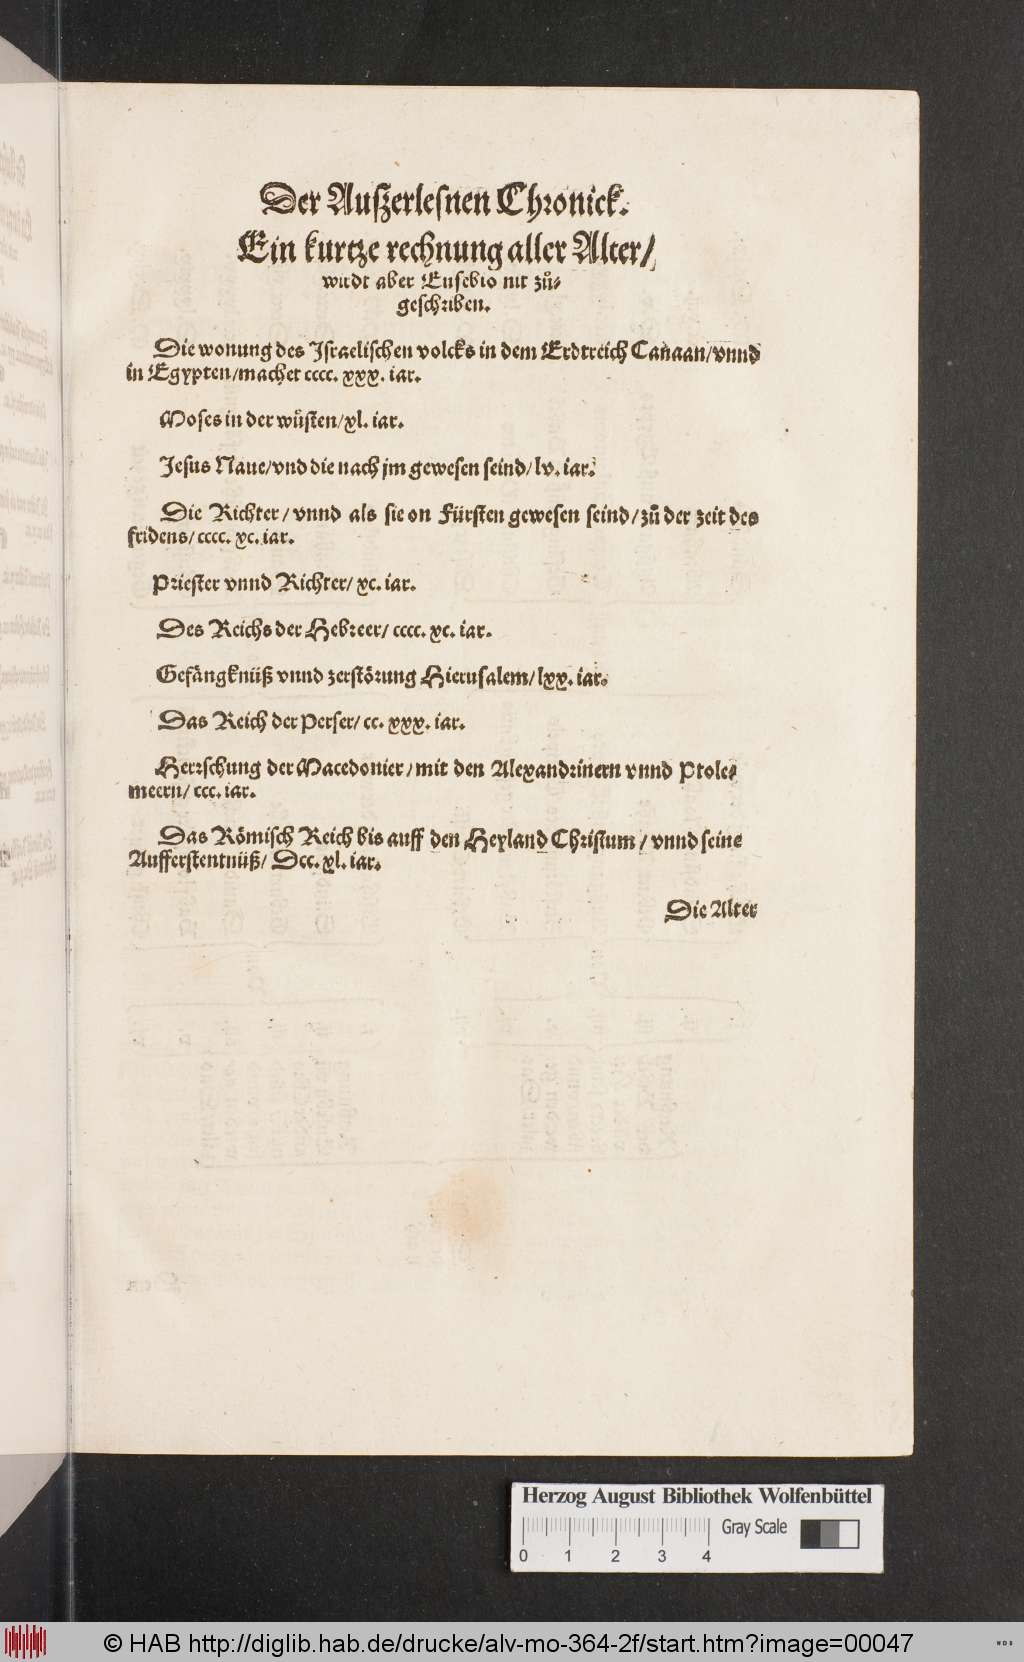 Der Auſzerleſnen Chronick.
Ein kurtze rechnung aller Alter/
wirdt aber Euſebio nit zů⸗
geſchriben.
Die wonung des Iſraeliſchen volcks in dem Erdtreich Canaan/vnnd
in Egypten/machet cccc. xxx. iar.
Moſes in der wůſten/xl. iar.
Jeſus Naue/vnd die nach jm geweſen ſeind/lv. iar.
Die Richter/vnnd als ſie on Fürſten geweſen ſeind/zů der zeit des
fridens/cccc. xc. iar.
Prieſter vnnd Richter/xc. iar.
Des Reichs der Hebreer/cccc. xc. iar.
Gefångknüß vnnd zerſtörung Hieruſalem/lxx. iar.
Das Reich der Perſer/cc. xxx. iar.
Herrſchung der Macedonier/mit den Alexandrinern vnnd Ptole⸗
meern/ccc. iar.
Das Römiſch Reich bis auff den Heyland Chriſtum/vnnd ſeine
Aufferſtentnüß/Dcc. xl. iar.
Die Alter
Herzog August Bibliothek Wolfenbüttel
Gray Scale
0 1 2 3 4
© HAB http://diglib.hab.de/drucke/alv-mo-364-2f/start.htm?image=00047